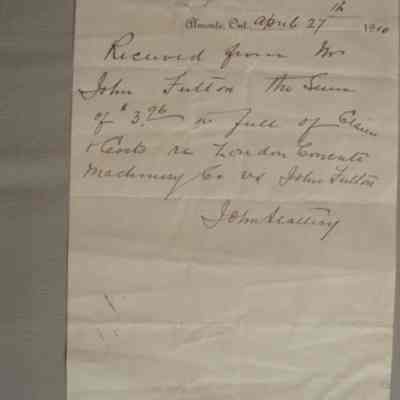 Almonte, Ont. April 27th 1910
Received from Mr
John Fulton the Sum
of $3.96 in full of Claim
& Costs re London Concrete
Machinery Co vs John Fulton
John Slattery